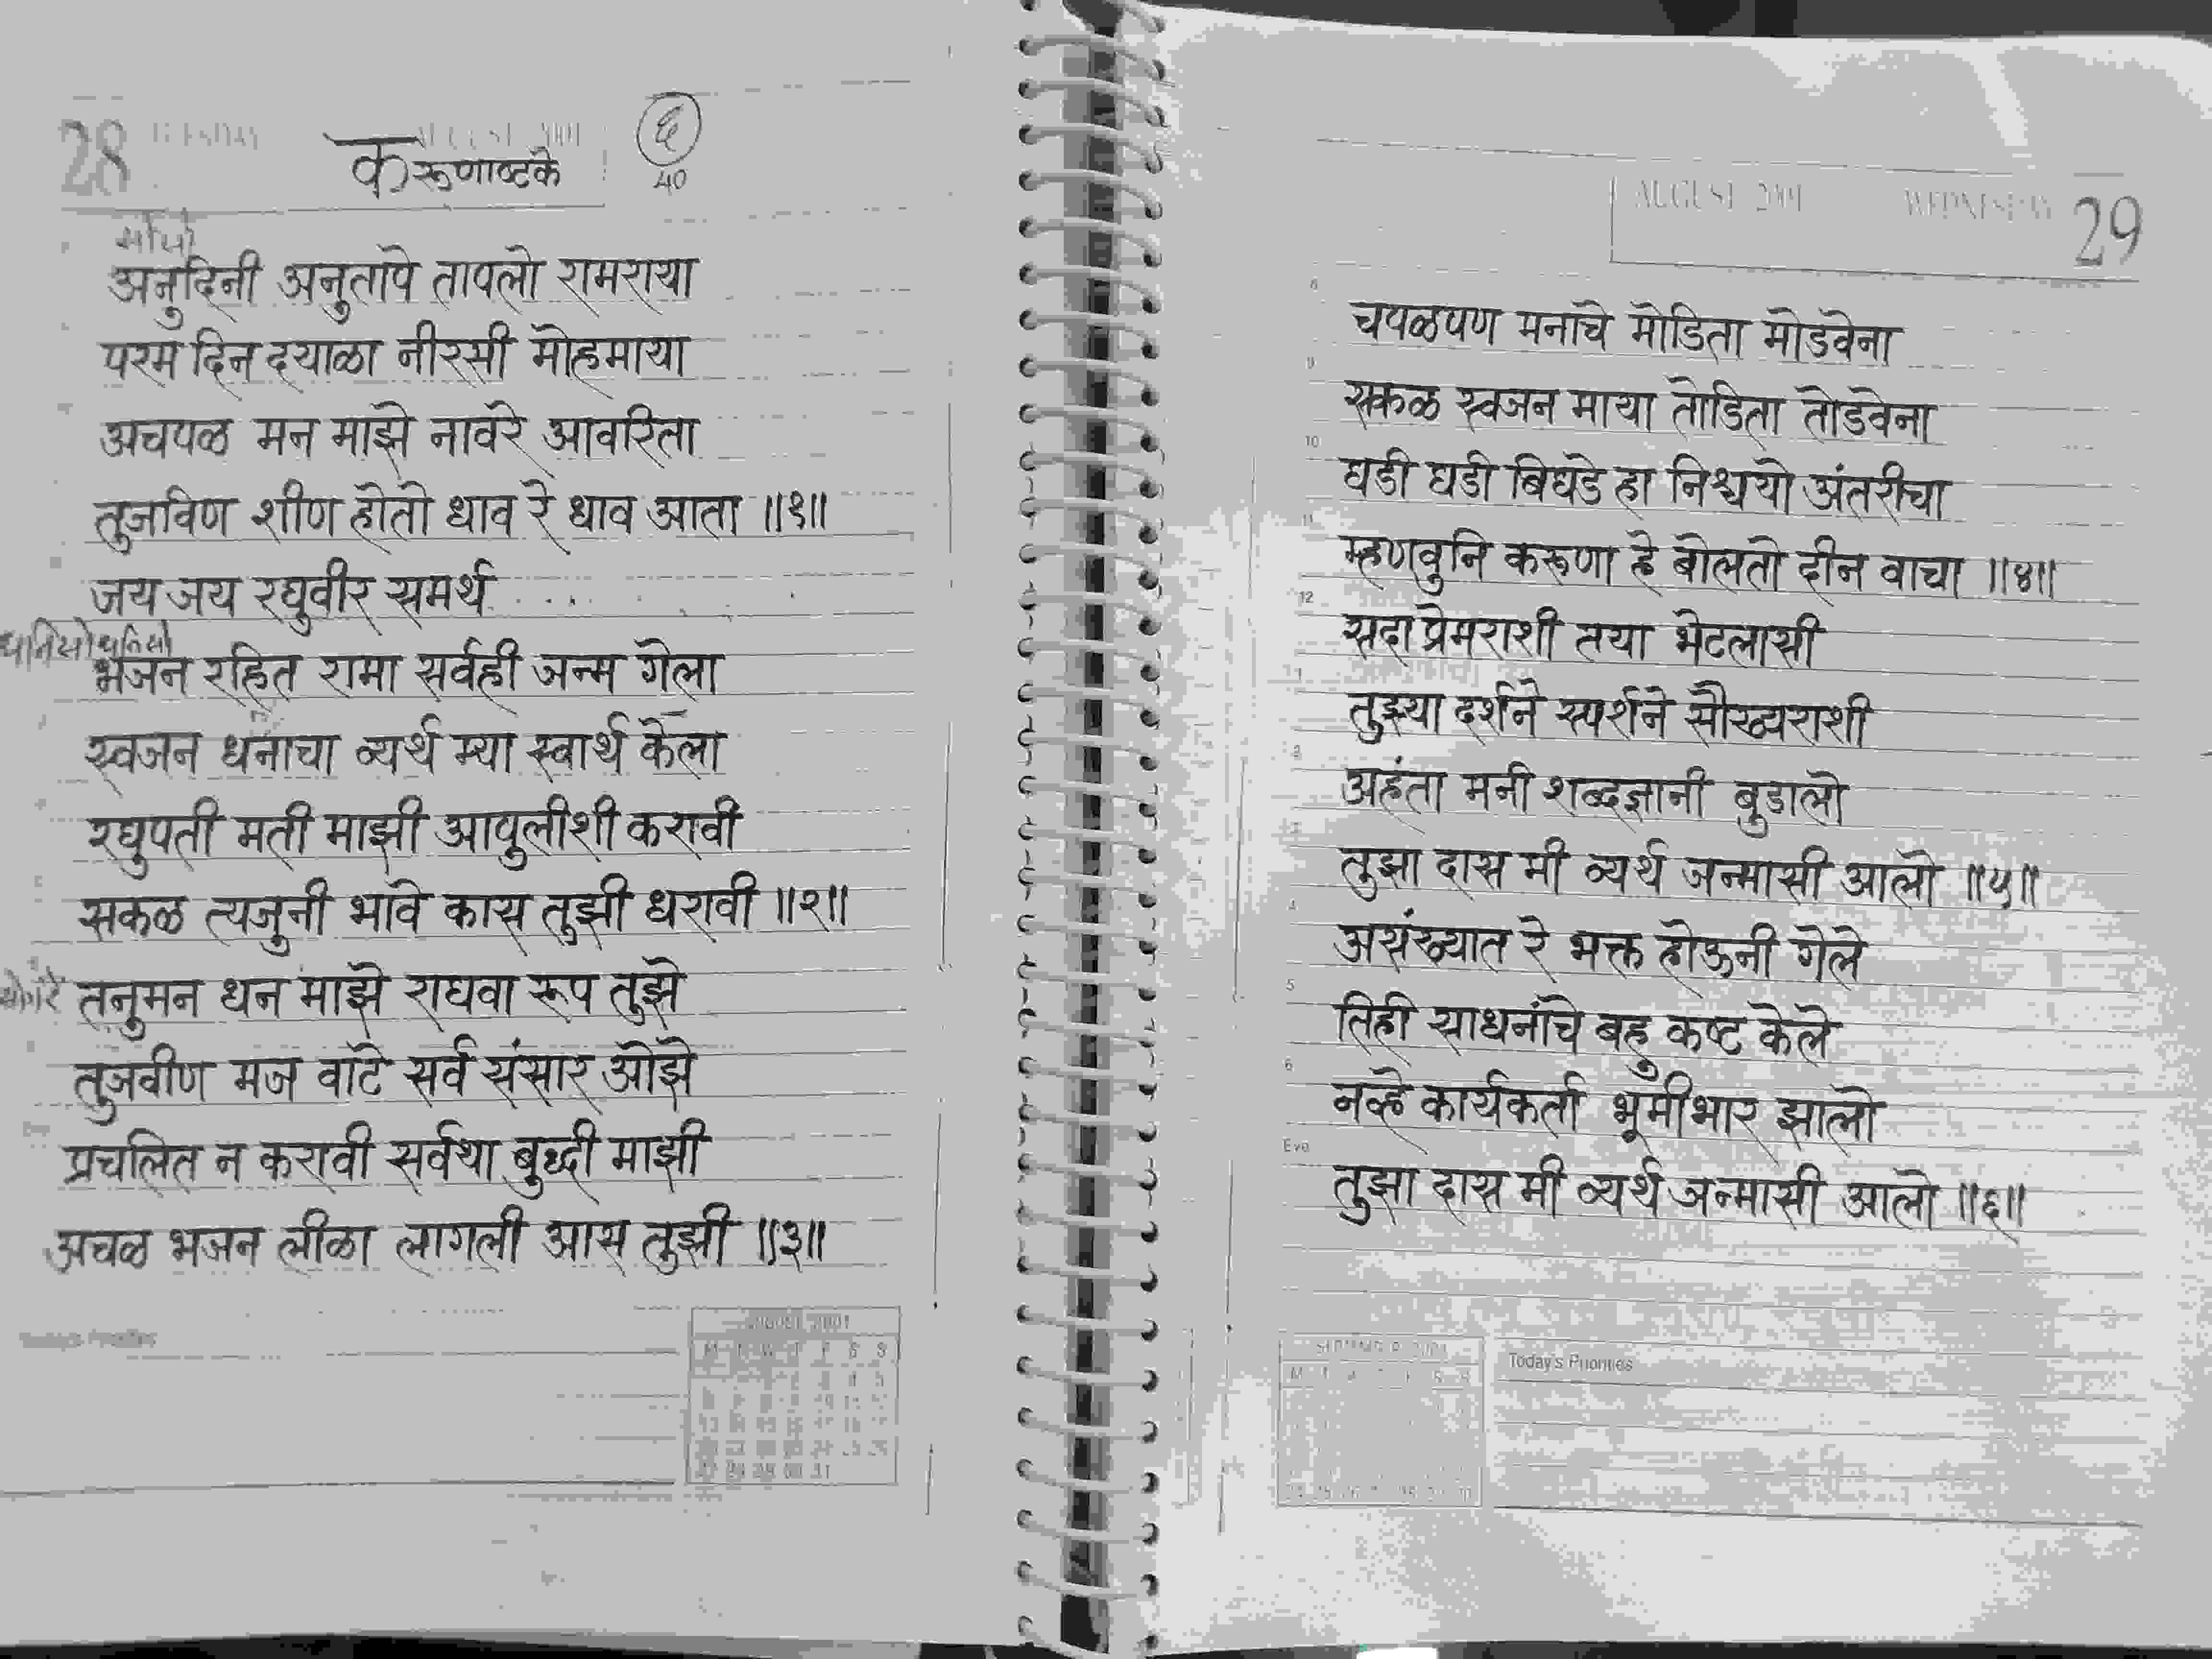 28 TUESDAY AUGUST 2001
करूणाष्टके
६
40
अनुदिनी अनुतापे तापलो रामराया
परम दिन दयाळा नीरसी मोहमाया
अचपळ मन माझे नावरे आवरिता
तुजविण शीण होतो धाव रे धाव आता ॥१॥
जय जय रघुवीर समर्थ
भजन रहित रामा सर्वही जन्म गेला
स्वजन धनाचा व्यर्थ म्या स्वार्थ केला
रघुपती मती माझी आपुलीशी करावी
सकळ त्यजुनी भावे कास तुझी धरावी ॥२॥
तनुमन धन माझे राघवा रूप तुझे
तुजवीण मज वाटे सर्व संसार ओझे
प्रचलित न करावी सर्वथा बुद्धी माझी
अचळ भजन लीळा लागली आस तुझी ॥३॥
AUGUST 2001
M T W T F S S
AUGUST 2001 WEDNESDAY 29
चपळपण मनाचे मोडिता मोडवेना
सकळ स्वजन माया तोडिता तोडवेना
घडी घडी बिघडे हा निश्चयो अंतरीचा
म्हणवुनि करूणा हे बोलतो दीन वाचा ॥४॥
सदा प्रेमराशी तया भेटलासी
तुझ्या दर्शने स्पर्शने सौख्यराशी
अहंता मनी शब्दज्ञानी बुडालो
तुझा दास मी व्यर्थ जन्मासी आलो ॥५॥
असंख्यात रे भक्त होऊनी गेले
तिही साधनांचे बहु कष्ट केले
नव्हे कार्यकर्ता भूमीभार झालो
तुझा दास मी व्यर्थ जन्मासी आलो ॥६॥
SEPTEMBER 2001
Today's Priorities